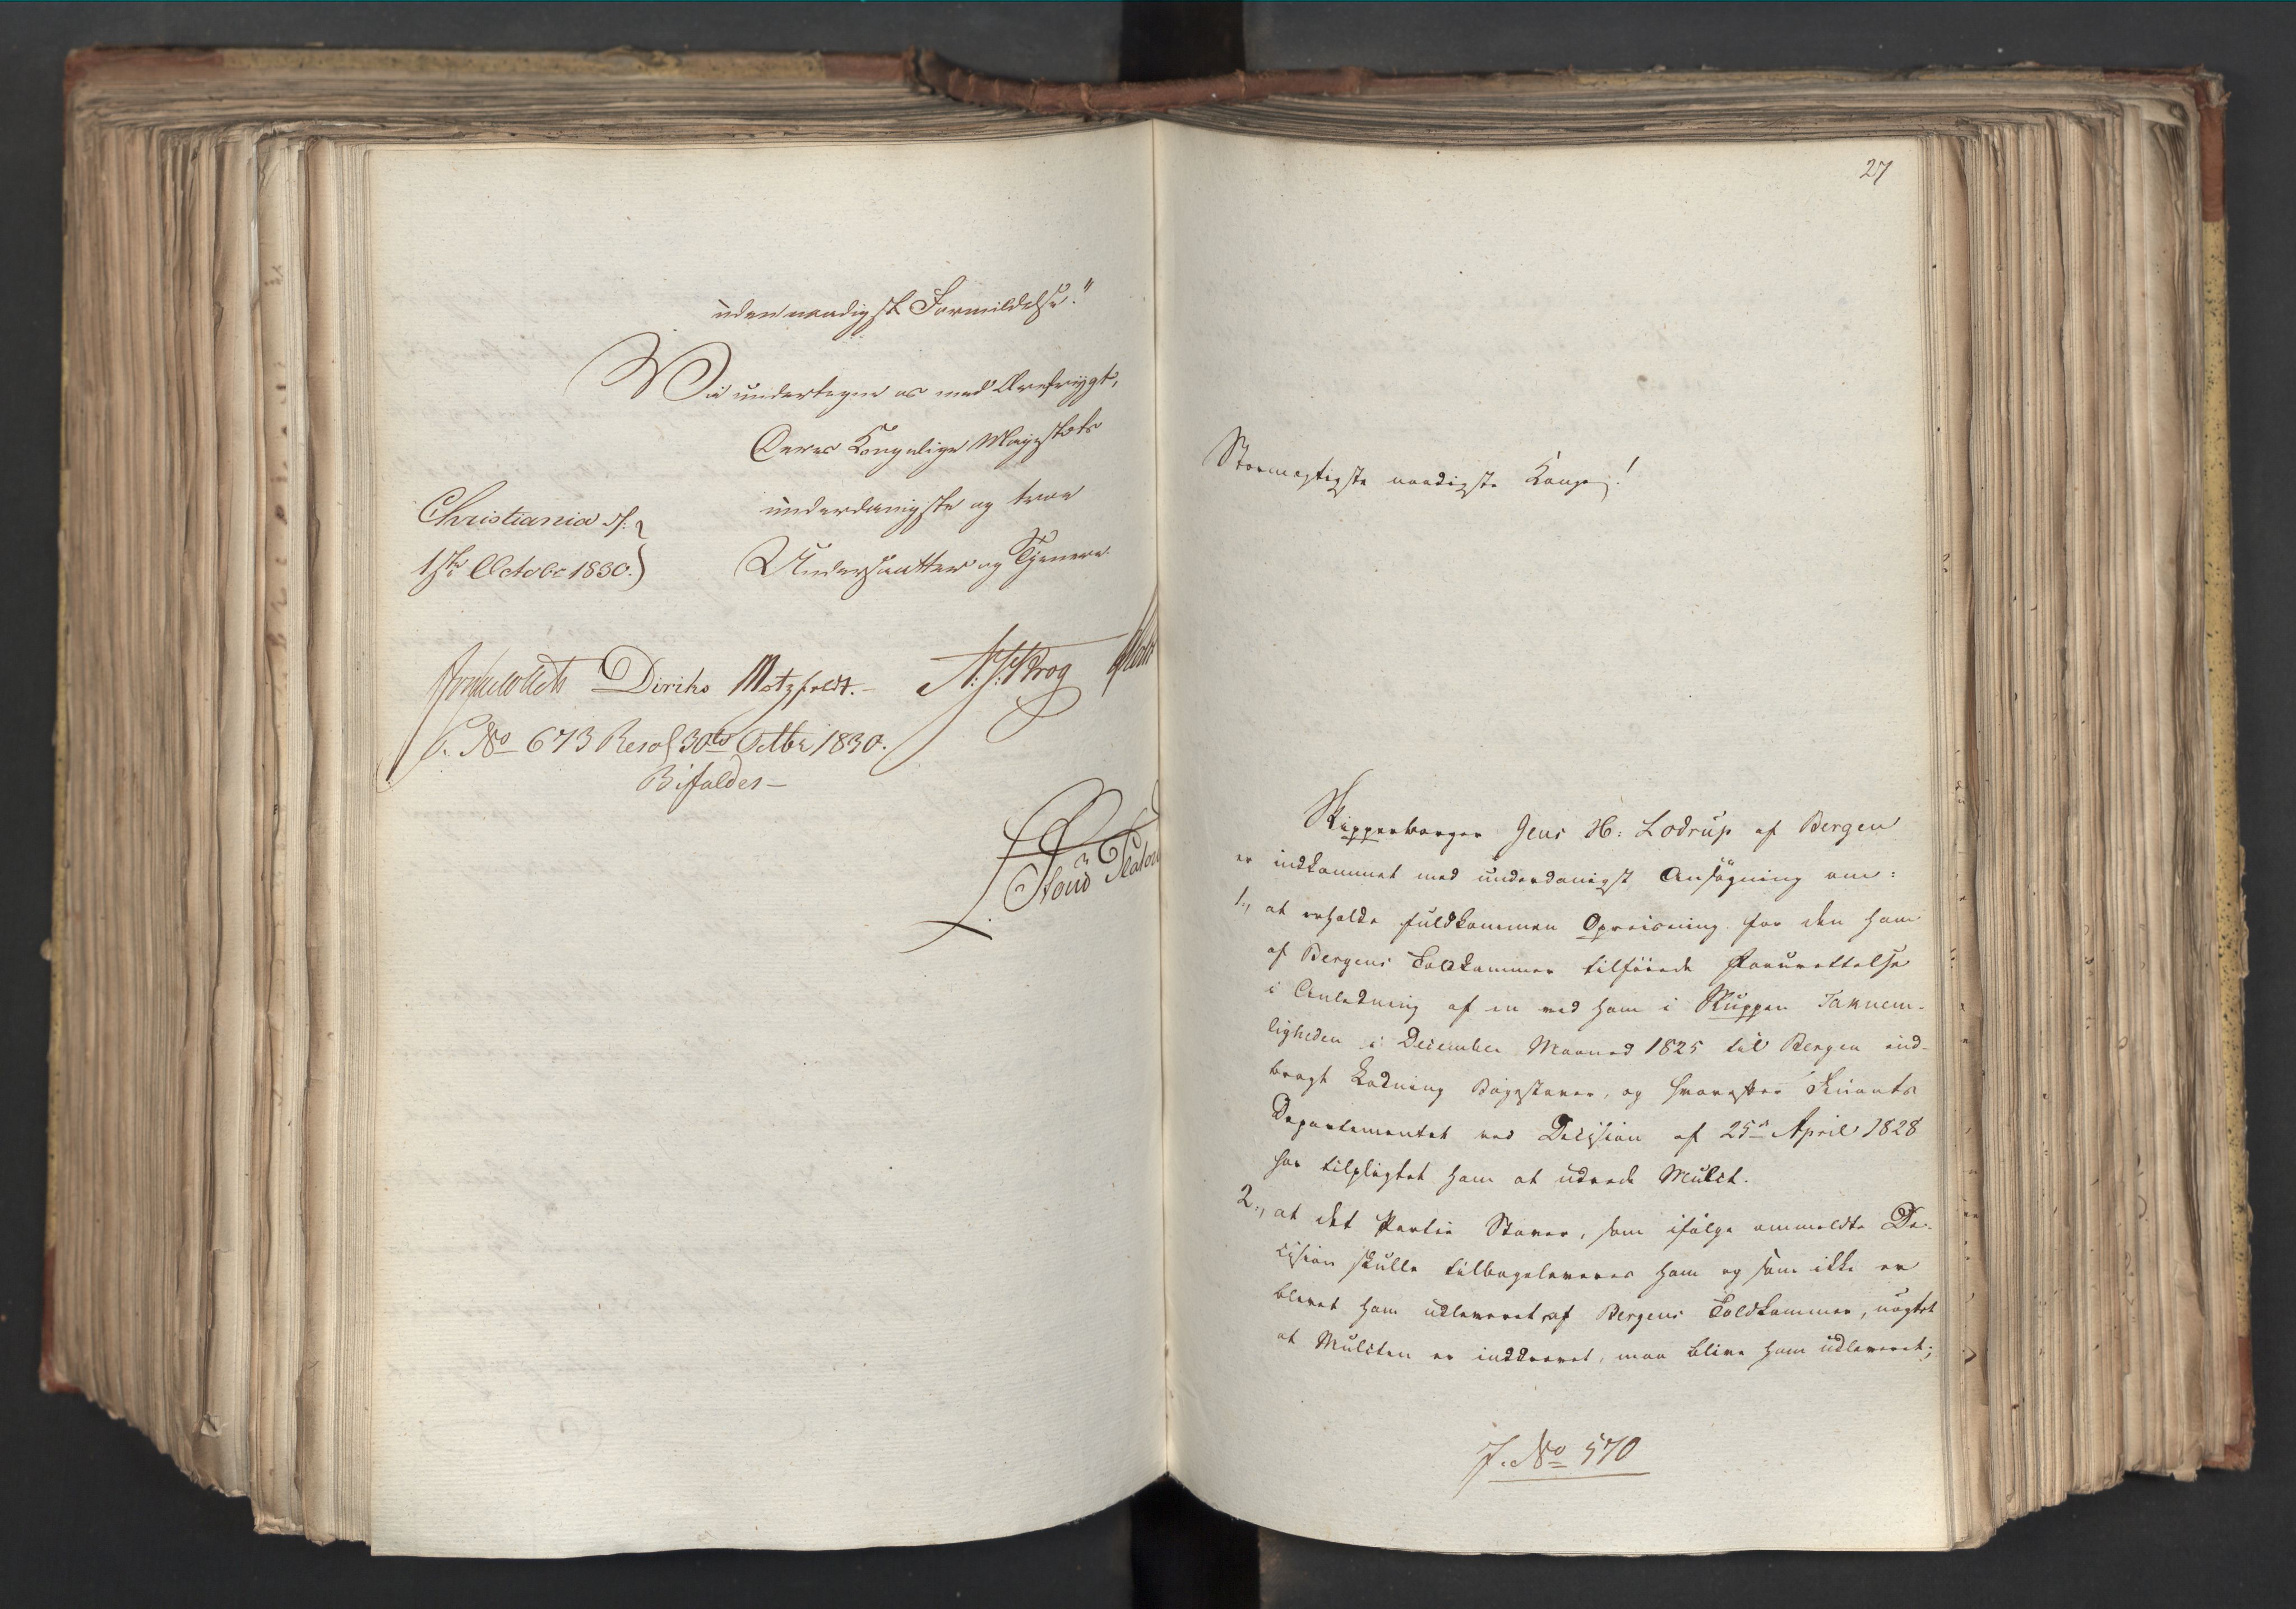 uden naadigst Formildelse."
Vi undertegne os med Ærefrygt,
Deres Kongelige Majestæts
underdanigste og troe
Undersaatter og Tjenere.
Christiania d:
1ste Octobr 1830.
Diriks Motzfeldt. Krog
No 673 Resol 30te Octbr 1830.
Bifaldes
27
Stormægtigste naadigste Konge!
Skipperborger Jens H: Lodrup af Bergen
er indkommet med underdanigst Ansøgning om:
1., at erholde fuldkommen Opreisning for den ham
af Bergens Toldkammer tilføiede Forurettelse
i Anledning af en ved ham i Skippen Taknem-
ligheden i December Maaned 1825 til Bergen ind-
bragt Ladning Bøgestaver, og hvorefter Finants
Departementet ved Decision af 25de April 1828
har tilpligtet ham at udrede Mulct.
2., at det Partie Staver, som ifølge ommeldte De-
cision skulle tilbageleveres ham og som ikke er
blevet ham udleveret af Bergens Toldkammer, uagtet
at Mulcten er inddrevet, maa blive ham udleveret;
J. No 570